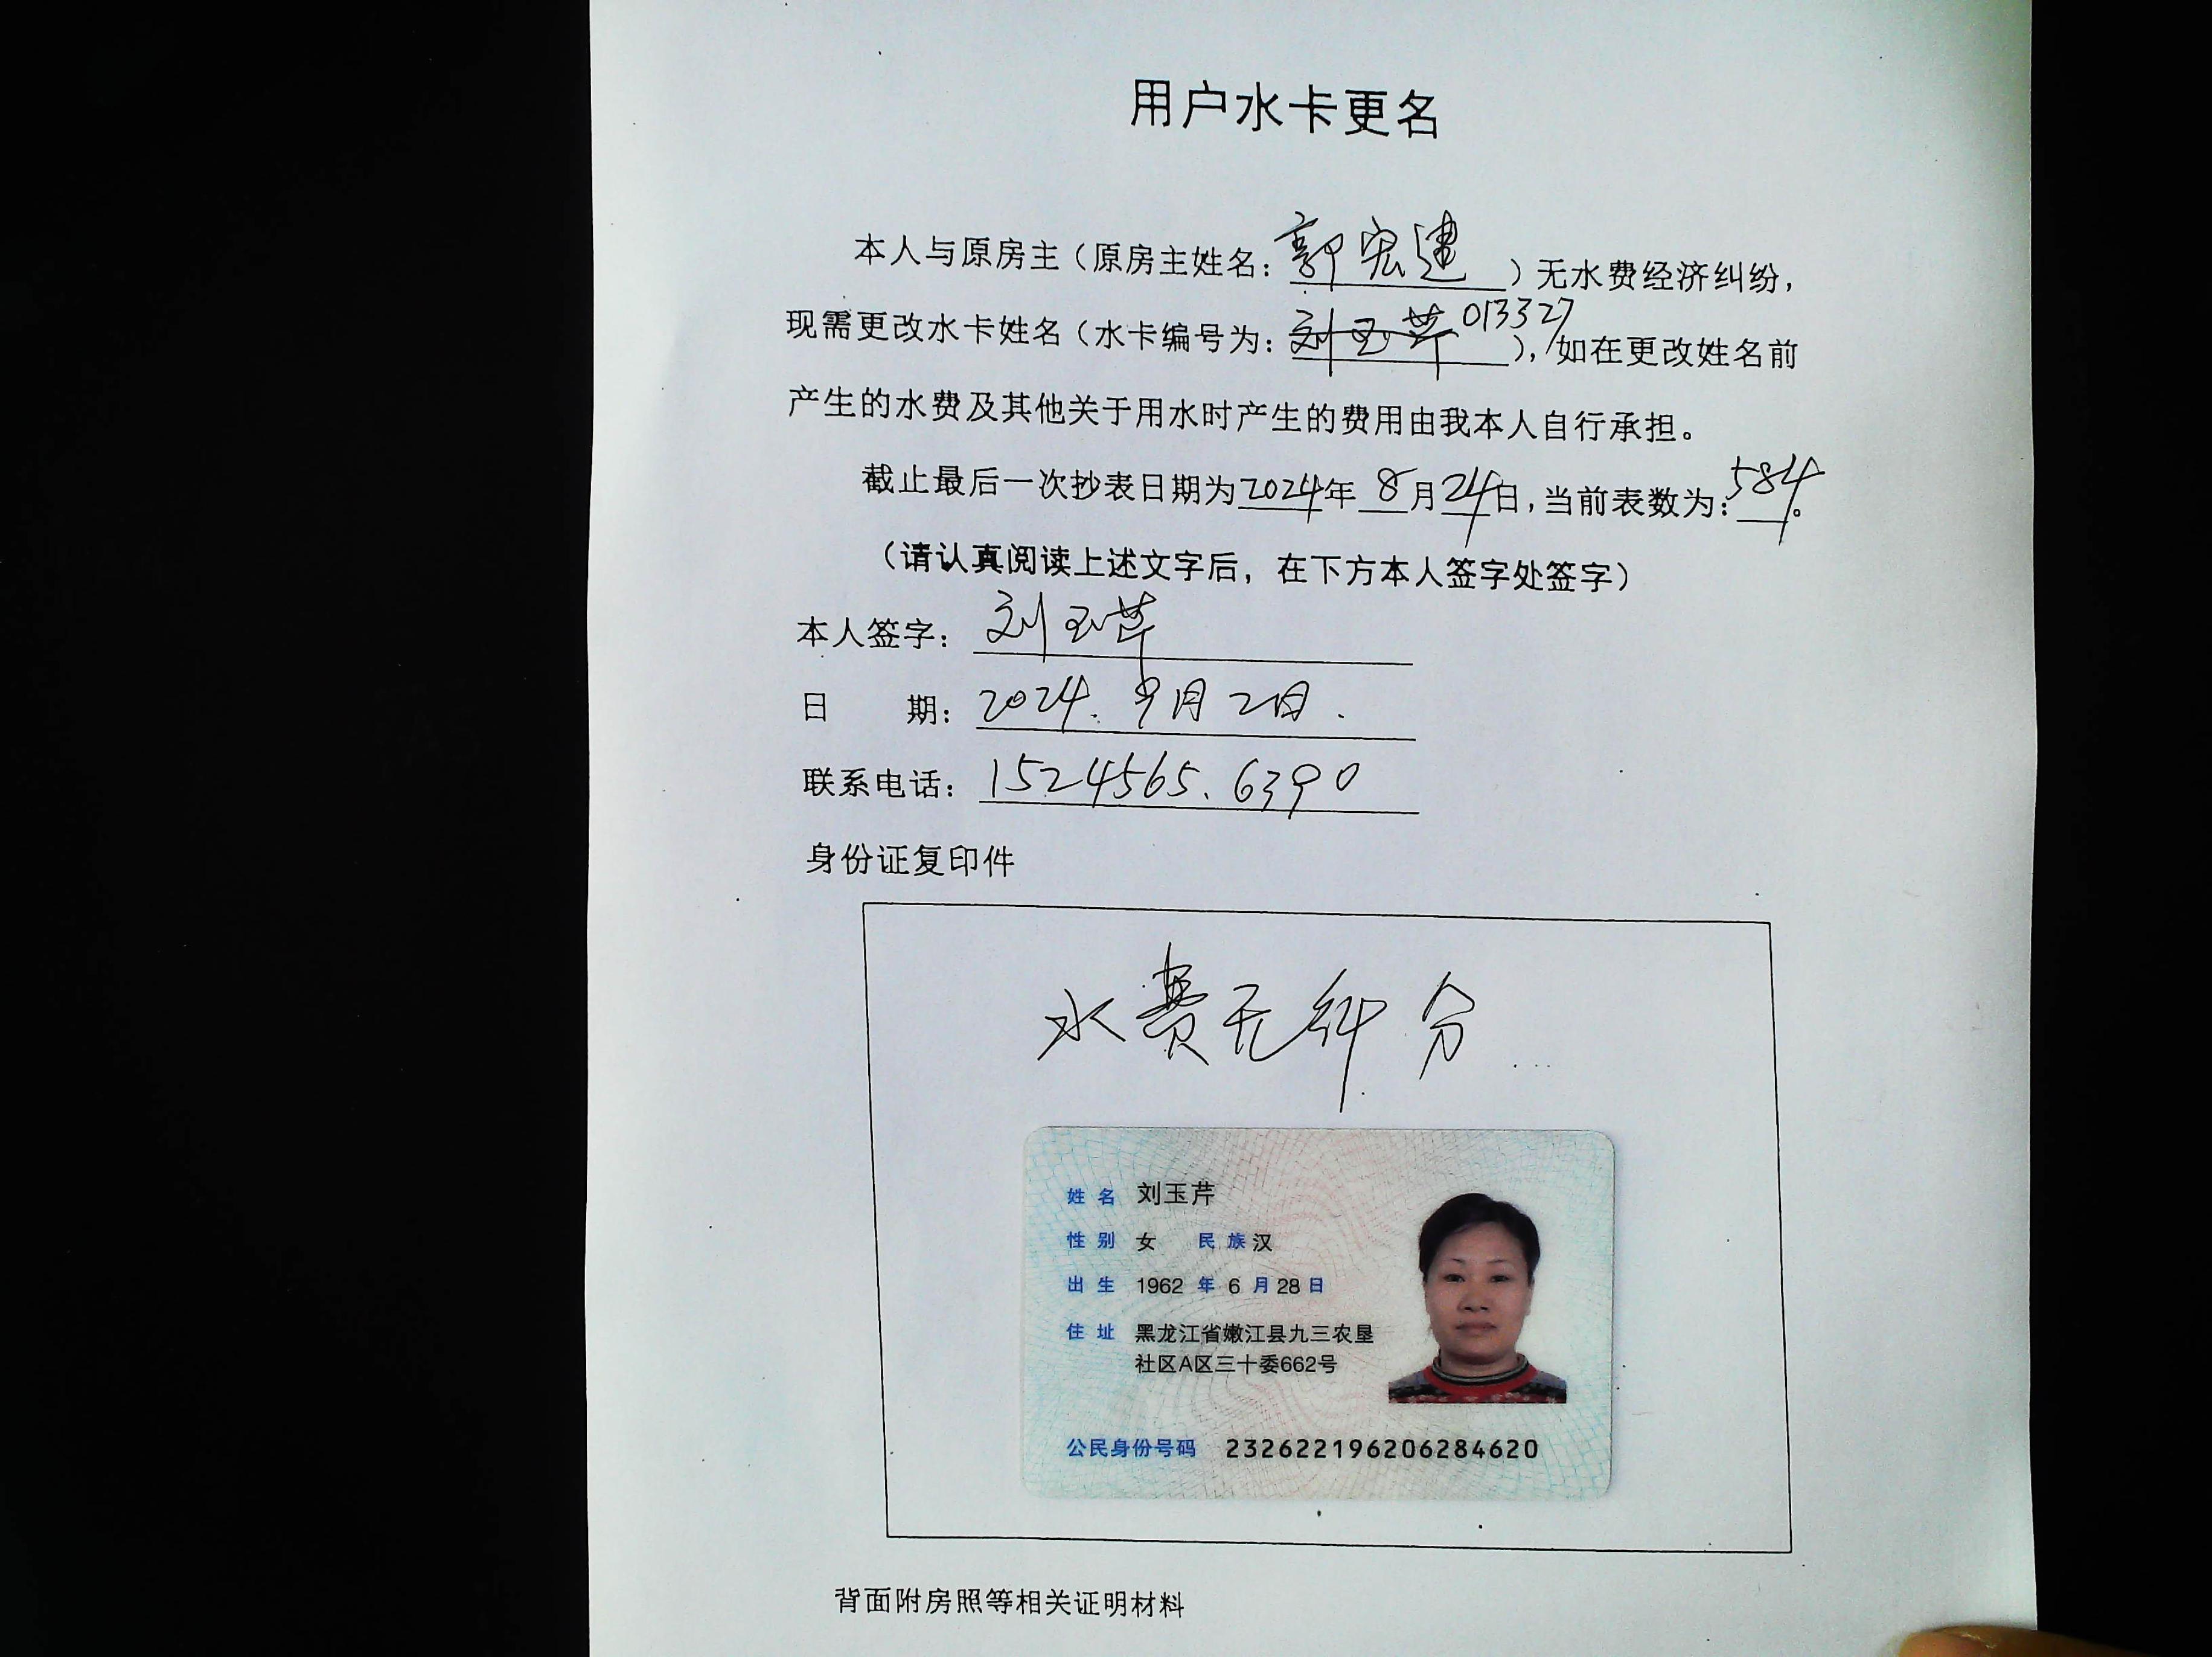 用户水卡更名
本人与原房主（原房主姓名：郭宏建）无水费经济纠纷，
现需更改水卡姓名（水卡编号为：刘玉芹 013327），如在更改姓名前
产生的水费及其他关于用水时产生的费用由我本人自行承担。
截止最后一次抄表日期为2024年8月24日，当前表数为：584。
（请认真阅读上述文字后，在下方本人签字处签字）
本人签字：刘玉芹
日 期：2024. 9月2日.
联系电话：1524565.6390
身份证复印件
水费无纠分
姓名 刘玉芹
性别 女 民族 汉
出生 1962 年 6 月 28 日
住址 黑龙江省嫩江县九三农垦
社区A区三十委662号
公民身份号码 232622196206284620
背面附房照等相关证明材料